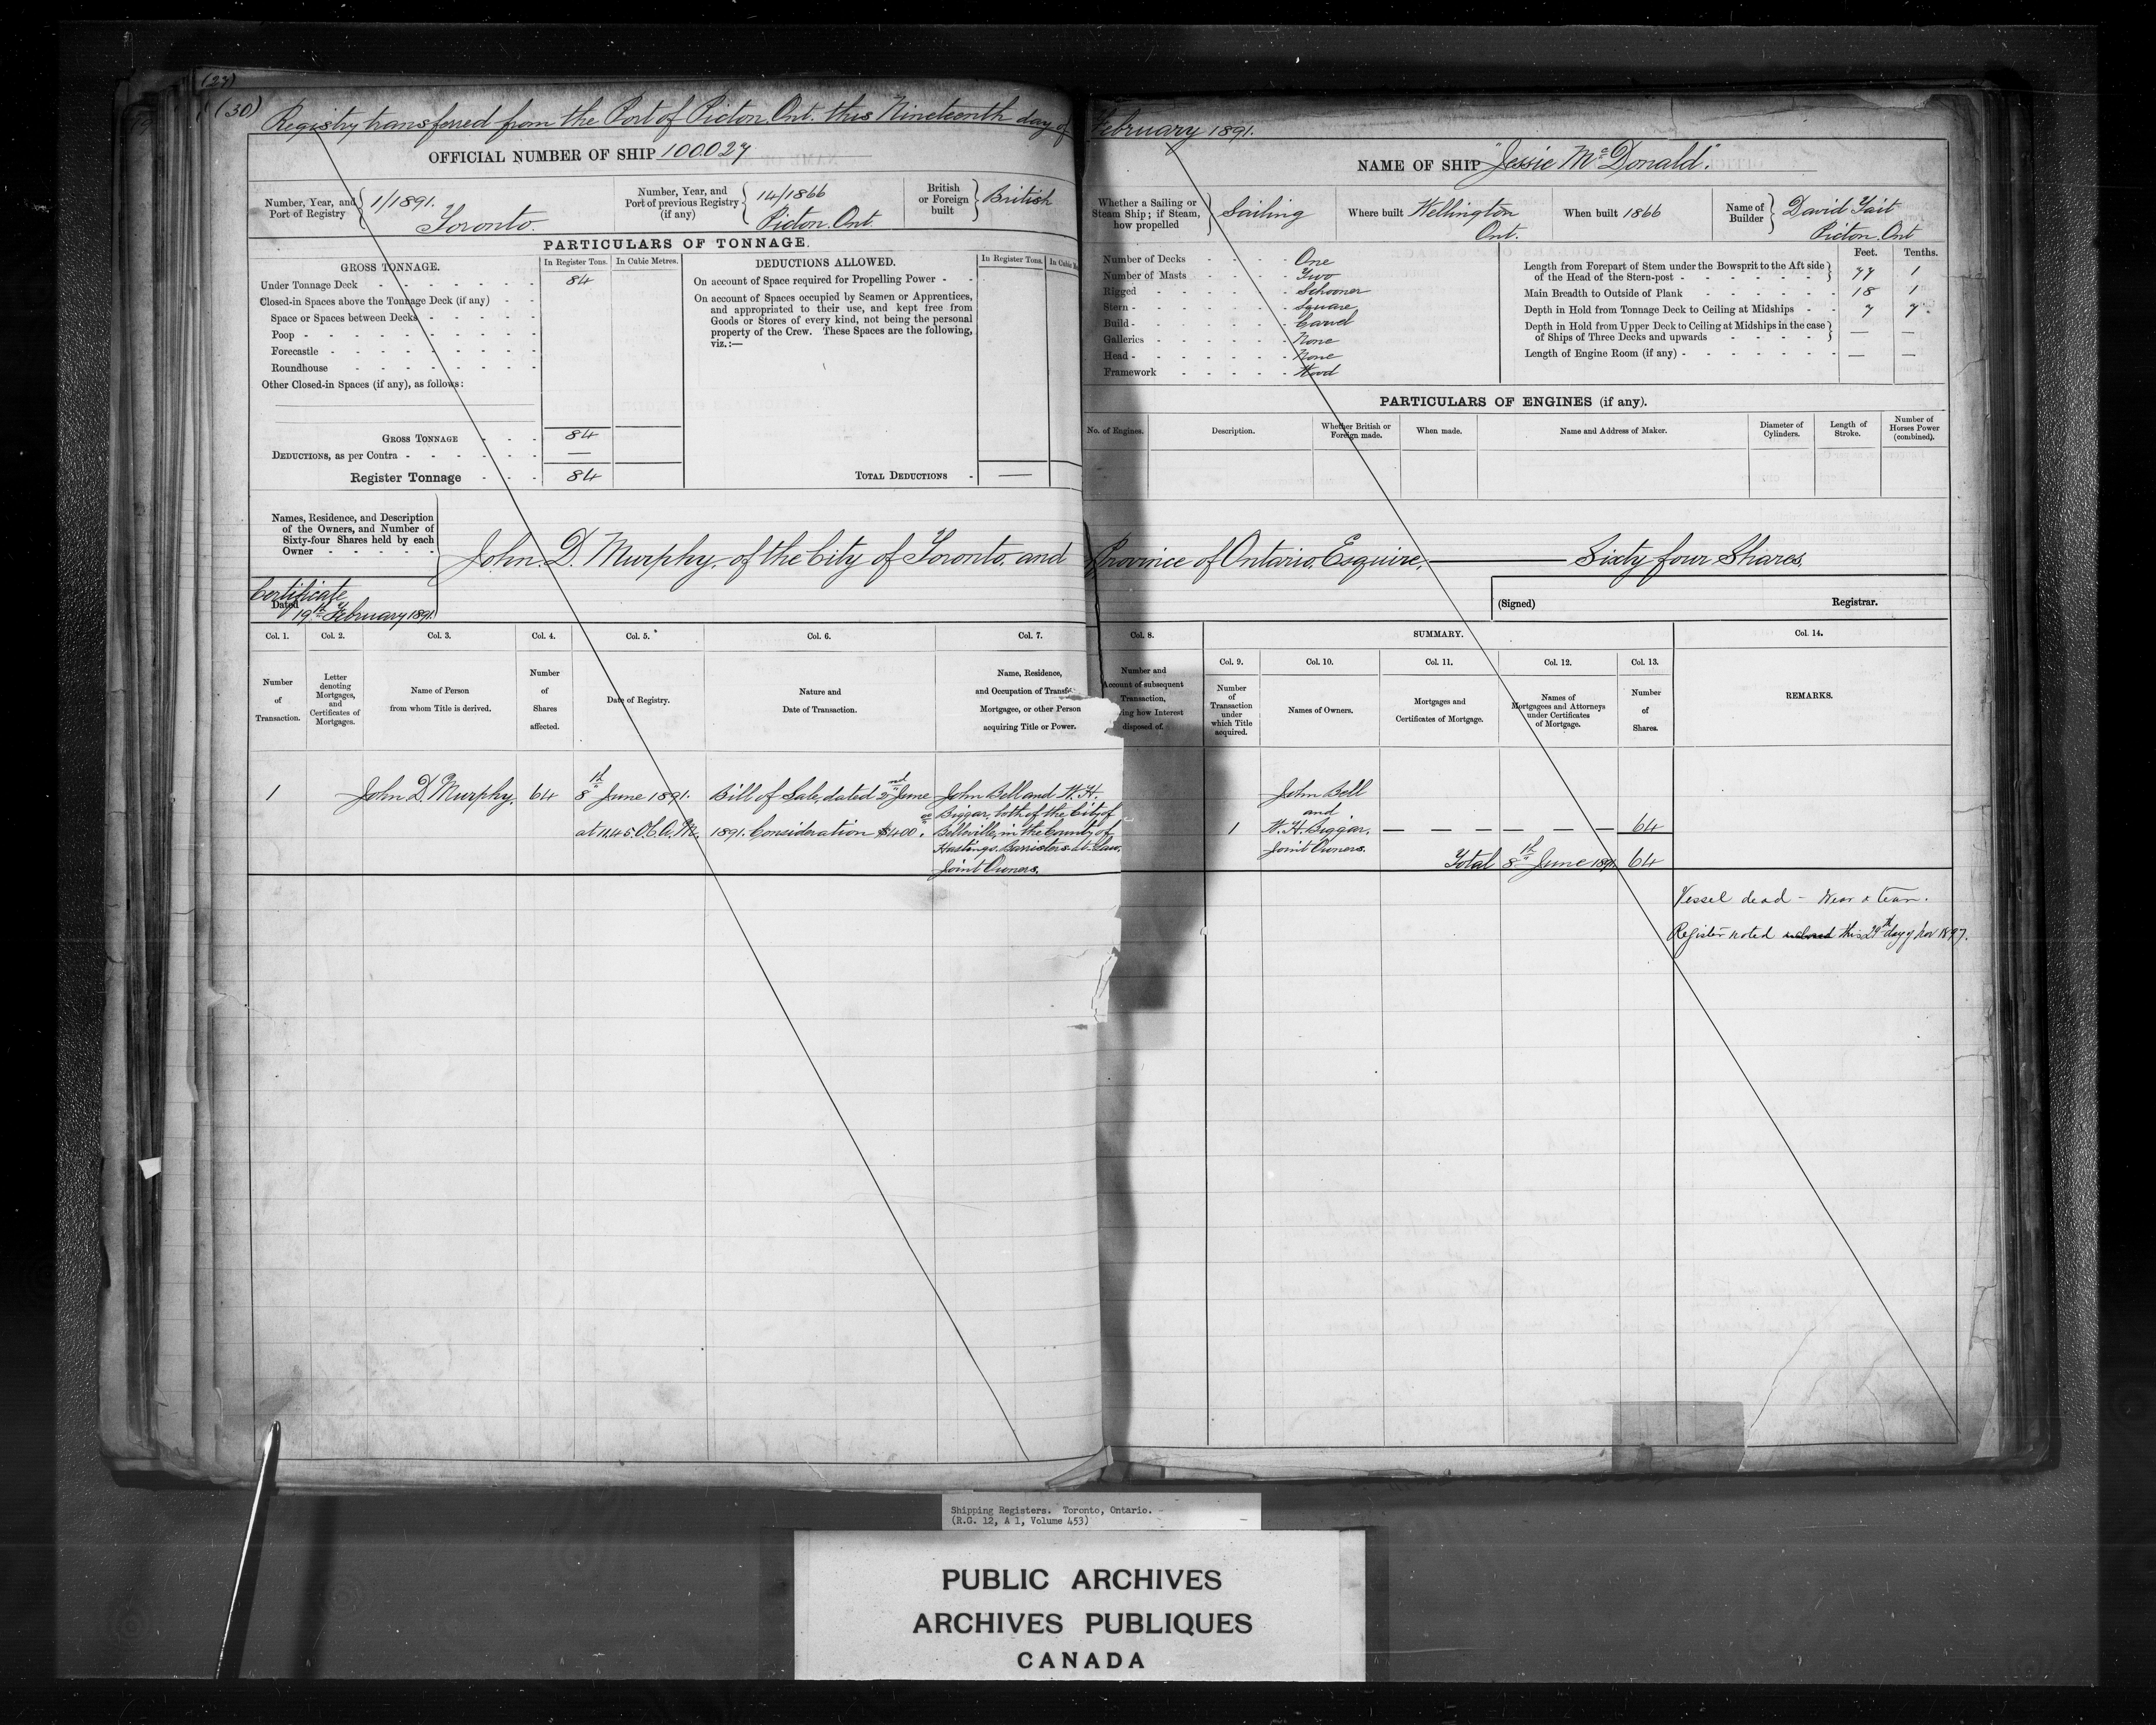 (27)
(30) Registry transferred from the Port of Picton Ont. this Nineteenth day of February 1891.
OFFICIAL NUMBER OF SHIP 100.027
NAME OF SHIP "Jessie McDonald".
Number, Year, and Port of Registry 1/1891. Toronto.
Number, Year, and Port of previous Registry (if any) 14/1866 Picton. Ont.
British or Foreign built British
Whether a Sailing or Steam Ship; if Steam, how propelled Sailing
Where built Wellington Ont.
When built 1866
Name of Builder David Tait Picton. Ont
PARTICULARS OF TONNAGE.
GROSS TONNAGE.
In Register Tons. In Cubic Metres.
Under Tonnage Deck 84
Closed-in Spaces above the Tonnage Deck (if any)
Space or Spaces between Decks
Poop
Forecastle
Roundhouse
Other Closed-in Spaces (if any), as follows:
GROSS TONNAGE 84
DEDUCTIONS, as per Contra —
Register Tonnage 84
DEDUCTIONS ALLOWED.
In Register Tons.
On account of Space required for Propelling Power
On account of Spaces occupied by Seamen or Apprentices,
and appropriated to their use, and kept free from
Goods or Stores of every kind, not being the personal
property of the Crew. These Spaces are the following,
viz.:—
TOTAL DEDUCTIONS —
Number of Decks One
Number of Masts Two
Rigged Schooner
Stern Square
Build Carvel
Galleries None
Head None
Framework Wood
Feet. Tenths.
Length from Forepart of Stem under the Bowsprit to the Aft side
of the Head of the Stern-post 77 1
Main Breadth to Outside of Plank 18 1
Depth in Hold from Tonnage Deck to Ceiling at Midships 7 7
Depth in Hold from Upper Deck to Ceiling at Midships in the case
of Ships of Three Decks and upwards — —
Length of Engine Room (if any) — —
PARTICULARS OF ENGINES (if any).
No. of Engines. Description. Whether British or Foreign made. When made. Name and Address of Maker. Diameter of Cylinders. Length of Stroke. Number of Horses Power (combined).
Names, Residence, and Description
of the Owners, and Number of
Sixty-four Shares held by each
Owner
John D. Murphy, of the City of Toronto, and Province of Ontario, Esquire, — Sixty four Shares.
Certificate
Dated 19th February 1891.
(Signed) Registrar.
Col. 1. Col. 2. Col. 3. Col. 4. Col. 5. Col. 6. Col. 7. Col. 8. SUMMARY. Col. 14.
Col. 9. Col. 10. Col. 11. Col. 12. Col. 13.
Number of Transaction.
Letter denoting Mortgages, and Certificates of Mortgages.
Name of Person from whom Title is derived.
Number of Shares affected.
Date of Registry.
Nature and Date of Transaction.
Name, Residence,
and Occupation of
Mortgagee, or other Person
acquiring Title or Power.
Number and
Account of subsequent
Transaction,
how Interest
disposed of.
Number of Transaction under which Title acquired.
Names of Owners.
Mortgages and Certificates of Mortgage.
Names of Mortgagees and Attorneys under Certificates of Mortgage.
Number of Shares.
REMARKS.
1
John D. Murphy.
64
8th June 1891.
at 11.45 O.C. A.M.
Bill of Sale, dated 2nd June
1891. Consideration $400.
John Bell and W. H.
Biggar, both of the City of
Belleville, in the County of
Hastings. Barristers-at-Law.
Joint Owners.
1
John Bell
and
W. H. Biggar.
Joint Owners.
— — — — — 64
Total 8th June 1891. 64
Vessel dead – Wear & tear.
Register noted this 29th day of Nov 1897.
Shipping Registers. Toronto, Ontario.
(R.G. 12, A 1, Volume 453)
PUBLIC ARCHIVES
ARCHIVES PUBLIQUES
CANADA